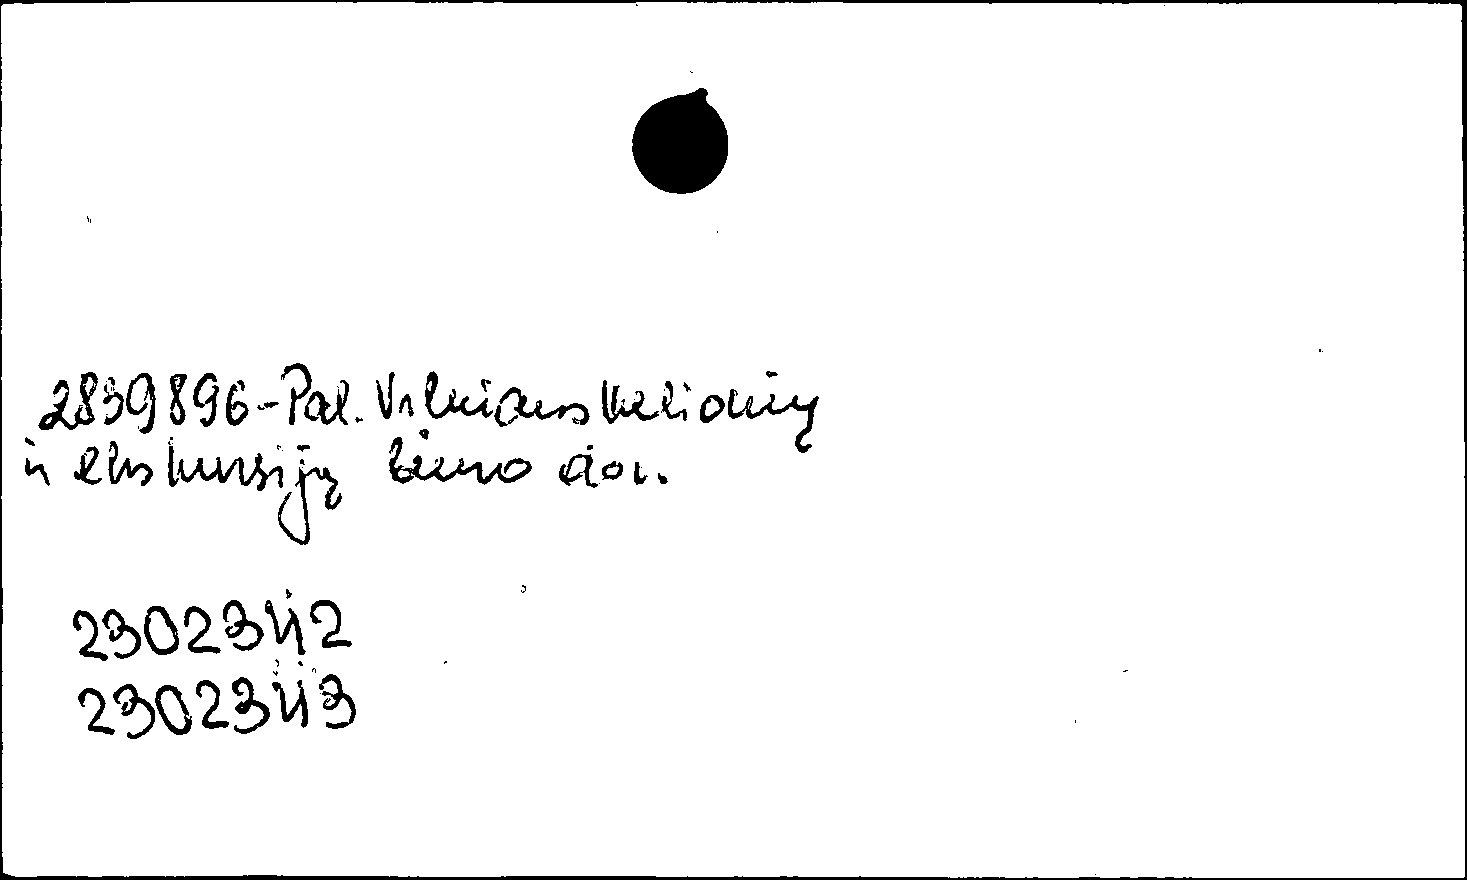 2839896-Pal. Vilniaus kelionių
ir ekskursijų biuro dov.
2302342
2302343